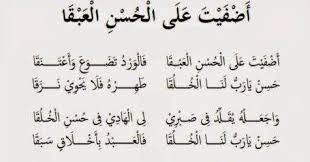 أَضْفَيْتَ عَلَى الْحُسْنِ الْعَبَقَا
أَضْفَيْتَ عَلَى الْحُسْنِ الْعَبَقَا فَالْوَرْدُ تَضَوَّعَ وَأَعْتَنَقَا
حَسِّنْ يَارَبُّ لَنَا الْخُلُقَا طَهِّرْهُ فَلَا يَحْوِي نَزَقَا
وَاجْعَلْهُ يُقَلِّدُ فِي صَبْرِي لِي الْهَادِيْ فِي حُسْنِ الْخُلُقَا
حَسِّنْ يَارَبُّ لَنَا الْخُلُقَا فَالْعَبْدُ بِأَخْلَاقٍ سَبَقَا